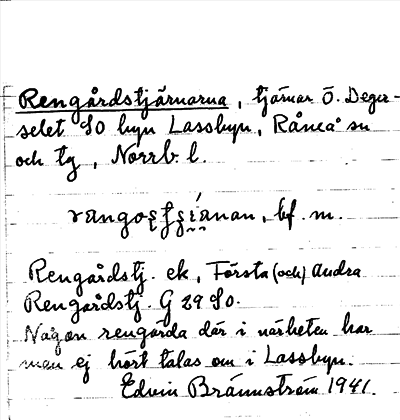 Rengårdstjärnarna, tjärnar Ö. Deger-
selet SO byn Lassbyn, Råneå sn
och tg, Norrb. l.
bf. m.
Rengårdstj. ek, Första (och) Andra
Rengårdstj. G 29 SO.
Någon rengärda där i närheten har
man ej hört talas om i Lassbyn.
Edvin Brännström 1941.